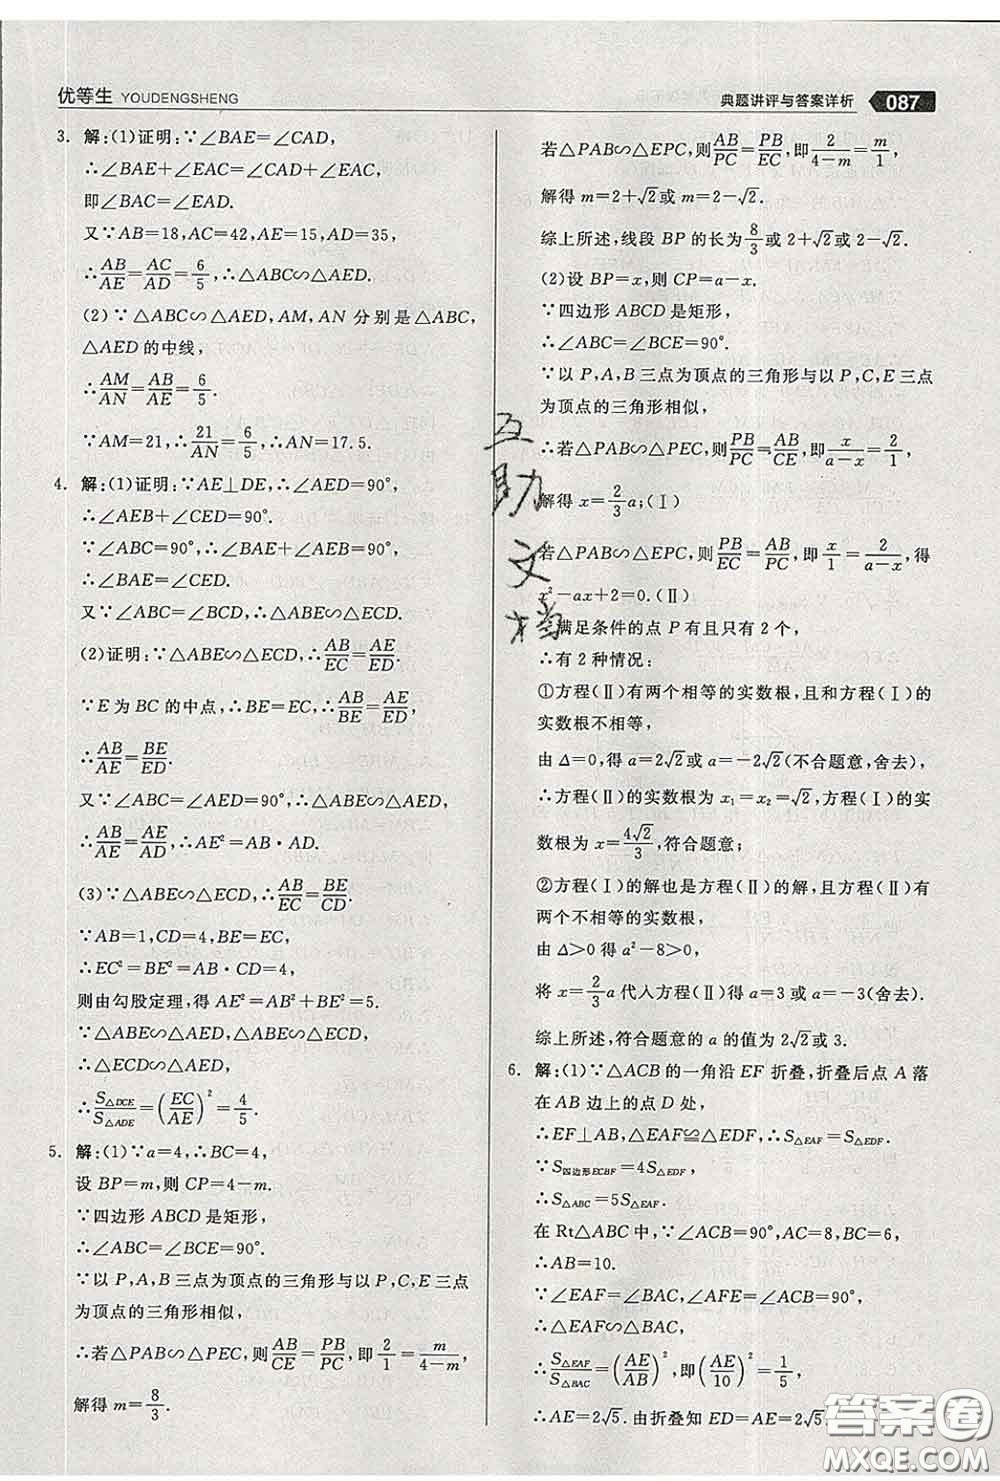 优等生 YOUDENGSHENG
典题讲评与答案详析 087
3. 解:(1)证明:∵∠BAE=∠CAD,
∴∠BAE+∠EAC=∠CAD+∠EAC,
即∠BAC=∠EAD.
又∵AB=18,AC=42,AE=15,AD=35,
∴AB/AE=AC/AD=6/5,∴△ABC∽△AED.
(2)∵△ABC∽△AED,AM,AN 分别是△ABC,
△AED的中线,
∴AM/AN=AB/AE=6/5.
∵AM=21,∴21/AN=6/5,∴AN=17.5.
4. 解:(1)证明:∵AE⊥DE,∴∠AED=90°,
∴∠AEB+∠CED=90°.
∵∠ABC=90°,∴∠BAE+∠AEB=90°,
∴∠BAE=∠CED.
又∵∠ABC=∠BCD,∴△ABE∽△ECD.
(2)证明:∵△ABE∽△ECD,∴AB/EC=AE/ED.
∵E为BC的中点,∴BE=EC,∴AB/BE=AE/ED,
∴AB/AE=BE/ED.
又∵∠ABC=∠AED=90°,∴△ABE∽△AED,
∴AB/AE=AE/AD,∴AE²=AB·AD.
(3)∵△ABE∽△ECD,∴AB/EC=BE/CD.
∵AB=1,CD=4,BE=EC,
∴EC²=BE²=AB·CD=4,
则由勾股定理,得AE²=AB²+BE²=5.
∵△ABE∽△AED,△ABE∽△ECD,
∴△ECD∽△AED,
∴S△DCE/S△ADE=(EC/AE)²=4/5.
5. 解:(1)∵a=4,∴BC=4,
设BP=m,则CP=4-m.
∵四边形ABCD是矩形,
∴∠ABC=∠BCE=90°.
∵以P,A,B三点为顶点的三角形与以P,C,E三点
为顶点的三角形相似,
∴若△PAB∽△PEC,则AB/CE=PB/PC,即2/1=m/(4-m),
解得m=8/3.
若△PAB∽△EPC,则AB/PC=PB/EC,即2/(4-m)=m/1,
解得m=2+√2或m=2-√2.
综上所述,线段BP的长为8/3或2+√2或2-√2.
(2)设BP=x,则CP=a-x.
∵四边形ABCD是矩形,
∴∠ABC=∠BCE=90°.
∵以P,A,B三点为顶点的三角形与以P,C,E三点
为顶点的三角形相似,
∴若△PAB∽△PEC,则PB/PC=AB/CE,即x/(a-x)=2/1,
解得x=2/3a;(Ⅰ)
若△PAB∽△EPC,则PB/EC=AB/PC,即x/1=2/(a-x),得
x²-ax+2=0.(Ⅱ)
满足条件的点P有且只有2个,
∴有2种情况:
①方程(Ⅱ)有两个相等的实数根,且和方程(Ⅰ)的
实数根不相等,
由Δ=0,得a=2√2或a=-2√2(不合题意,舍去),
∴方程(Ⅱ)的实数根为x₁=x₂=√2,方程(Ⅰ)的实
数根为x=4√2/3,符合题意;
②方程(Ⅰ)的解也是方程(Ⅱ)的解,且方程(Ⅱ)有
两个不相等的实数根,
由Δ>0得a²-8>0,
将x=2/3a代入方程(Ⅱ)得a=3或a=-3(舍去).
综上所述,符合题意的a的值为2√2或3.
6. 解:(1)∵△ACB的一角沿EF折叠,折叠后点A落
在AB边上的点D处,
∴EF⊥AB,△EAF≌△EDF,∴S△EAF=S△EDF.
∵S四边形ECBF=4S△EDF,
∴S△ABC=5S△EAF.
在Rt△ABC中,∵∠ACB=90°,AC=8,BC=6,
∴AB=10.
∵∠EAF=∠BAC,∠AFE=∠ACB=90°,
∴△EAF∽△BAC,
∴S△EAF/S△BAC=(AE/AB)²,即(AE/10)²=1/5,
∴AE=2√5.由折叠知ED=AE=2√5.
互助文档
答案圈
MXQE.COM